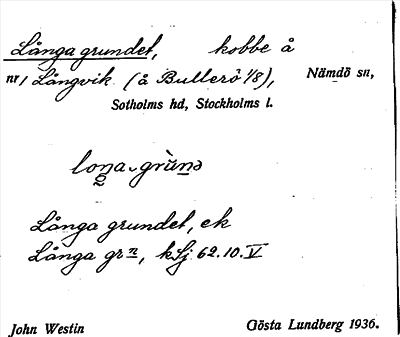 Långa grundet, kobbe å
nr 1 Långvik (å Bullerö 1/8), Nämdö sn,
Sotholms hd, Stockholms l.
loŋa-grùnə
Långa grundet, ek
Långa grn, kSj 62.10.V
John Westin Gösta Lundberg 1936.